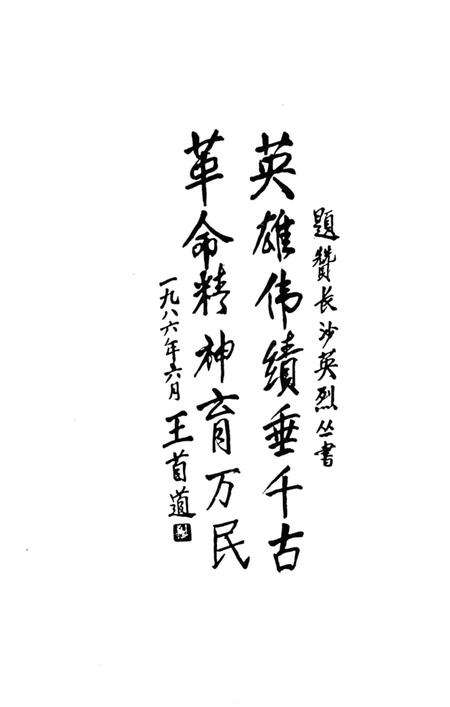 题赞长沙英烈丛书
英雄伟绩垂千古
革命精神育万民
一九八六年六月
王首道